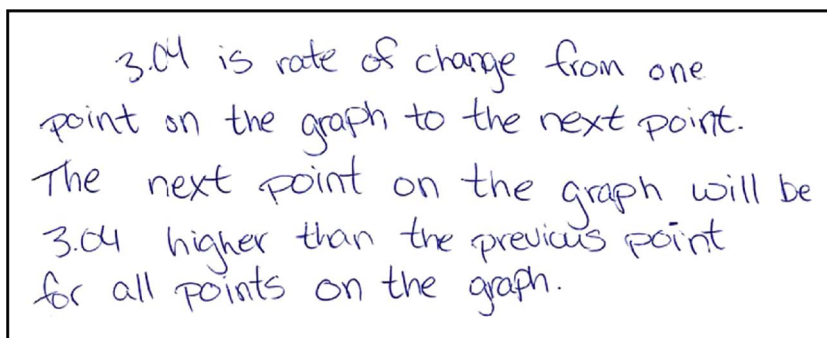 3.04 is rate of change from one
point on the graph to the next point.
The next point on the graph will be
3.04 higher than the previous point
for all points on the graph.